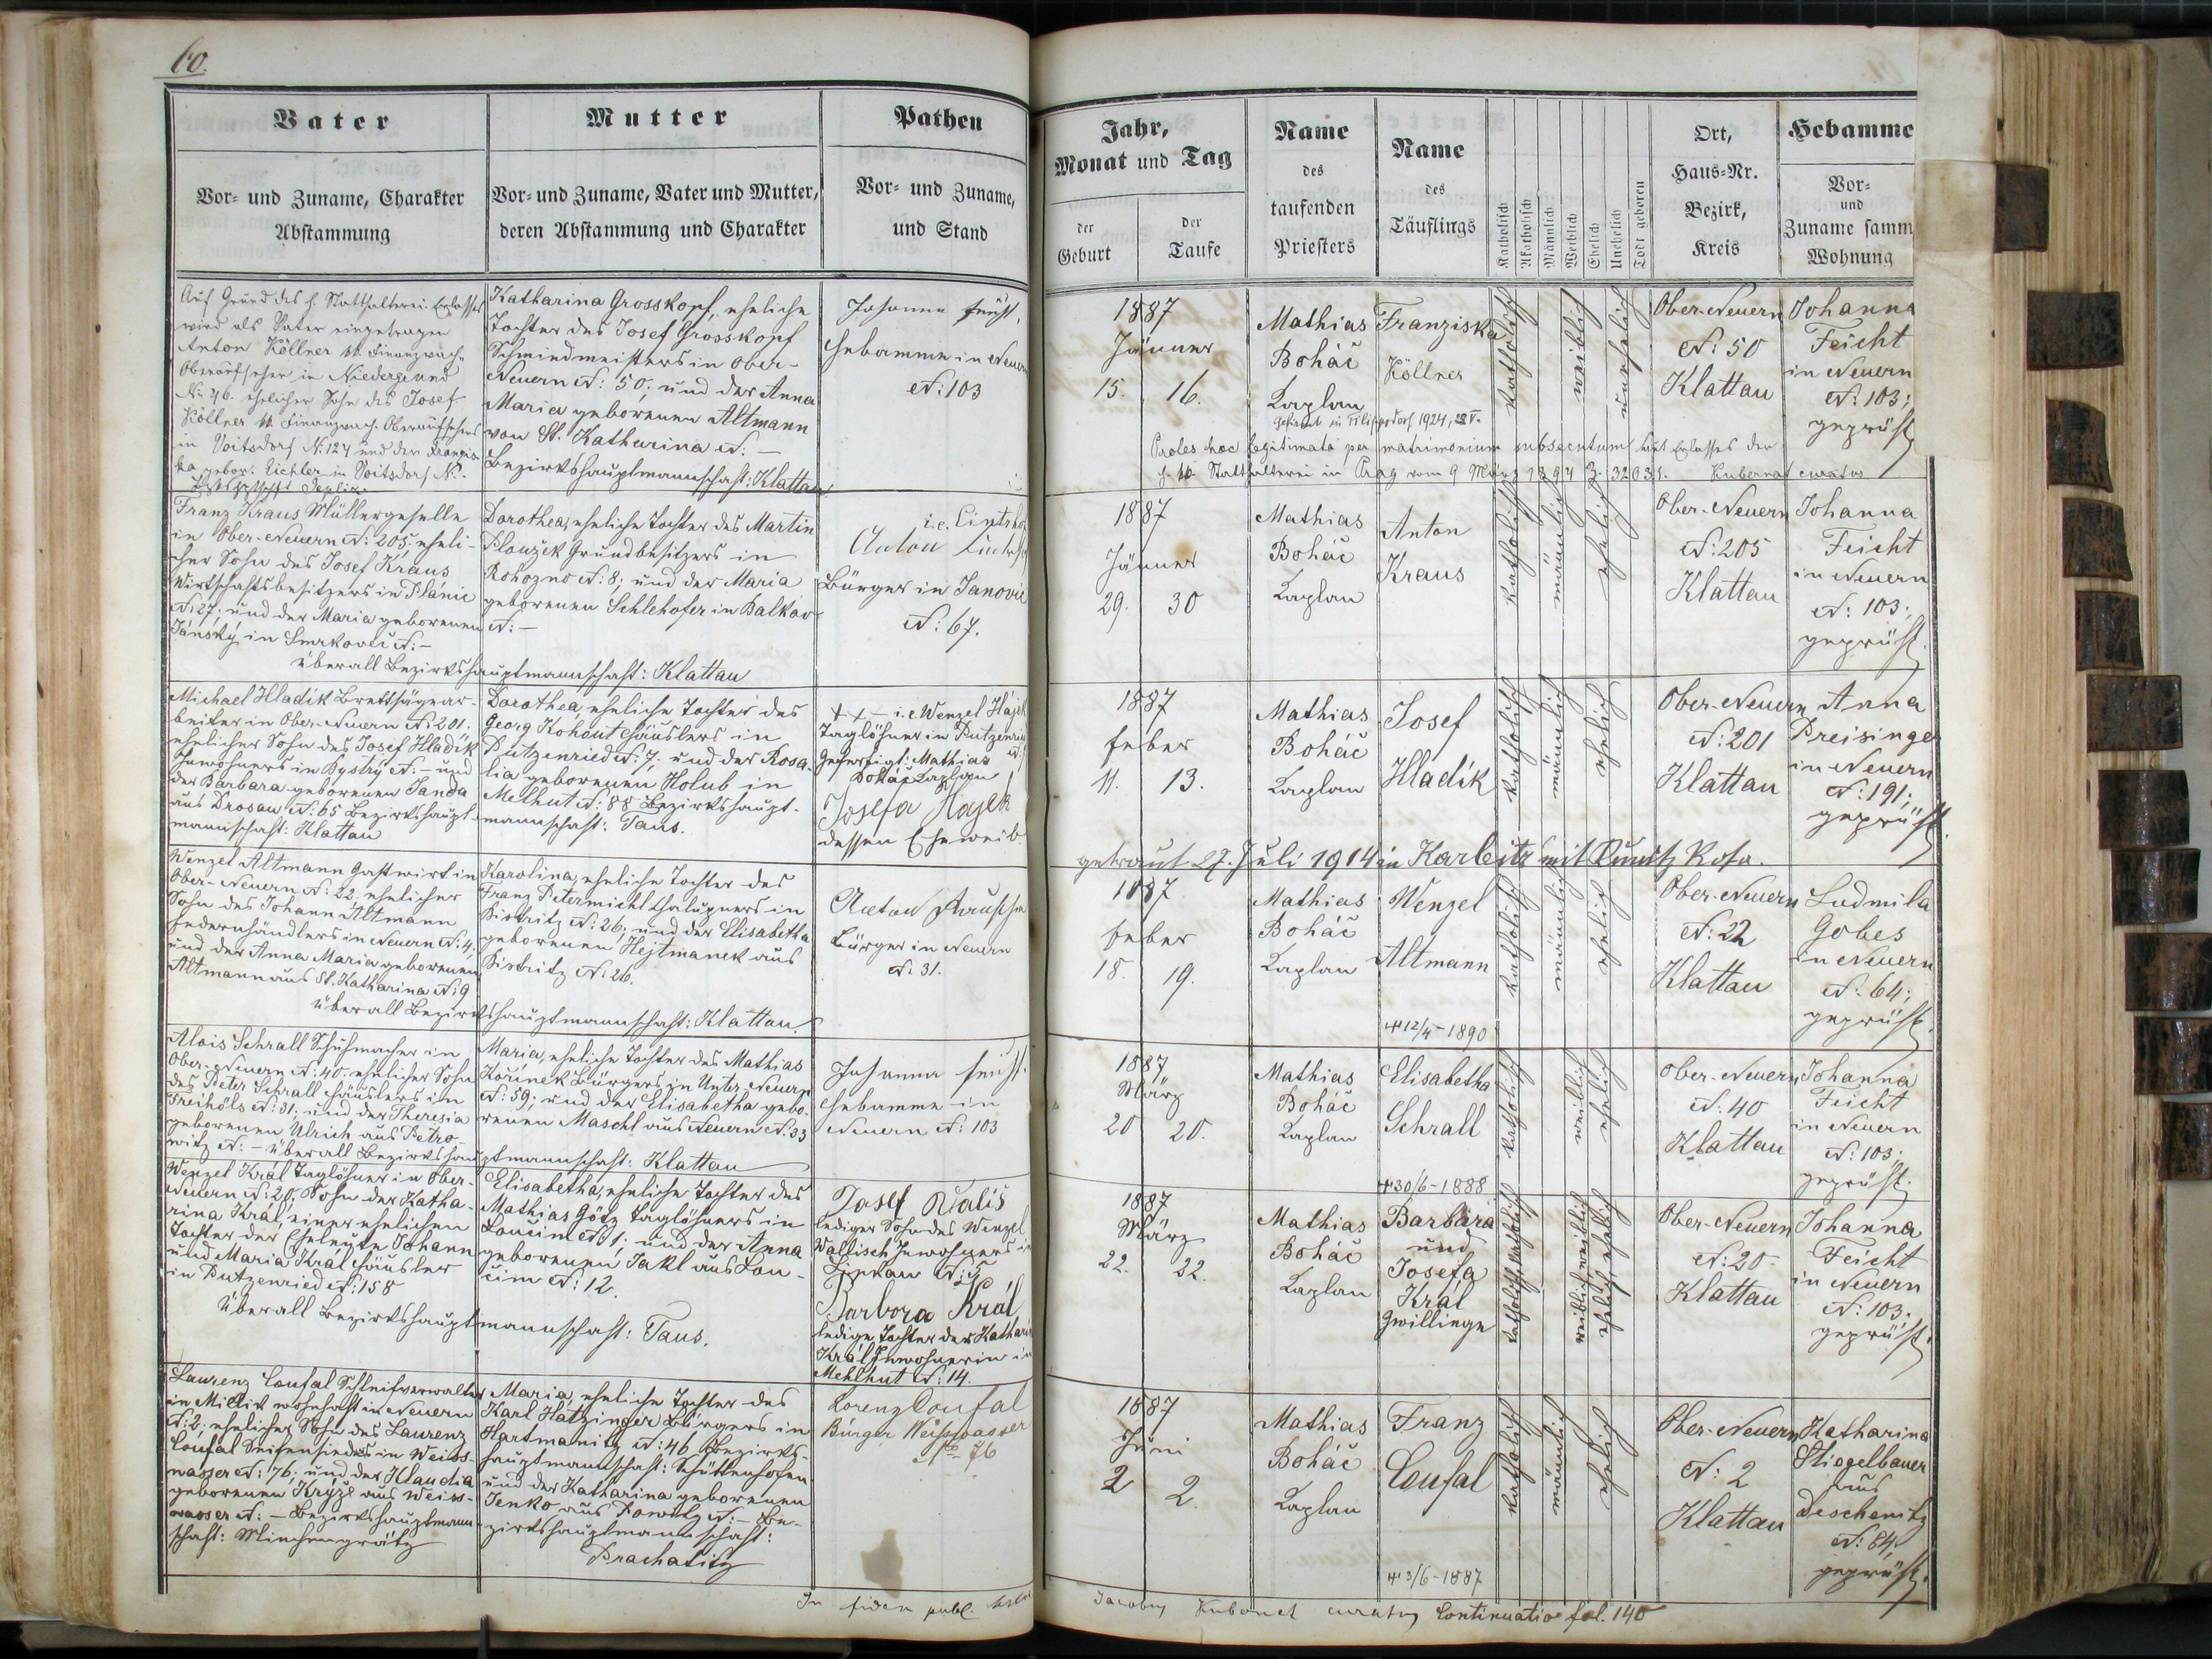 60.
Vater
Vor- und Zuname, Charakter
Abstammung
Mutter
Vor- und Zuname, Vater und Mutter,
deren Abstammung und Charakter
Pathen
Vor- und Zuname,
und Stand
Auf Grund des h. Statthalterei-Erlasses
wird als Vater eingetragen
Anton Köllner Finanzwach-
Oberaufseher in Niedergrund
N. 46. ehelicher Sohn des Josef
Köllner Finanzwach-Oberaufsehers
in Voitsdorf N. 124 und der Franzis-
ka gebor. Eichler in Voitsdorf N. -
Teplitz
Katharina Grosskopf, eheliche
Tochter des Josef Grosskopf
Schmiedmeisters in Ober-
Neuern N: 50; und der Anna
Maria geborenen Altmann
von St. Katharina N: -
Bezirkshauptmannschaft: Klattau
Johanna Feicht,
Hebamme in Neuern
N: 103
Franz Kraus Müllergeselle
in Ober-Neuern N: 205. eheli-
cher Sohn des Josef Kraus
Wirtschaftsbesitzers in Plánic
N: 27; und der Maria geborenen
Jánský in Smrkovec N: -
überall Bezirkshauptmannschaft: Klattau
Dorothea, eheliche Tochter des Martin
Plouzek Grundbesitzers in
Rohozno N: 8; und der Maria
geborenen Schlehofer in Balkov
N: -
i.e.
Anton
Bürger in Janovic
N: 67.
Michael Hladík Brettsägear-
beiter in Ober-Neuern N: 201.
ehelicher Sohn des Josef Hladík
Inwohners in Bystrý N: - und
der Barbara geborenen Janda
aus Drosau N: 65 Bezirkshaupt-
mannschaft: Klattau
Dorothea eheliche Tochter des
Georg Kohout Häuslers in
Putzenried N: 7. und der Rosa-
lia geborenen Holub in
Melhut N: 88 Bezirkshaupt-
mannschaft: Taus.
+++ i.e. Wenzel Hájek
Taglöhner in Putzenried
Gefertigt: Mathias
Boháč Kaplan
Josefa Hajek
dessen Eheweib
Wenzel Altmann Gastwirt in
Ober-Neuern N: 22. ehelicher
Sohn des Johann Altmann
Federnhändlers in Neuern N: 4,
und der Anna Maria geborenen
Altmann aus St. Katharina N: 9
überall Bezirkshauptmannschaft: Klattau.
Karolina, eheliche Tochter des
Franz Petermichl Chalupners in
Bistritz N: 26; und der Elisabetha
geborenen Hejtmanek aus
Bistritz N: 26.
Anton
Bürger in Neuern
N. 31.
Alois Schrall Schuhmacher in
Ober-Neuern N: 40. ehelicher Sohn
des Peter Schrall Häuslers in
Freihöls N: 31; und der Theresia
geborenen Ulrich aus Petro-
witz N: - überall Bezirkshauptmannschaft: Klattau
Maria, eheliche Tochter des Mathias
Kořínek Bürgers in Unter-Neuern
N: 59; und der Elisabetha gebo-
renen Maschl aus Neuern N: 33
Johanna Feicht.
Hebamme in
Neuern N: 103
Wenzel Král Taglöhner in Ober-
Neuern N: 20, Sohn der Katha-
rina Král, einer ehelichen
Tochter der Eheleute Johann
und Maria Král Häusler
in Putzenried N: 158
überall Bezirkshauptmannschaft: Taus.
Elisabetha, eheliche Tochter des
Mathias Götz Taglöhners in
Loučim N: 1; und der Anna
geborenen Jakl aus Lou-
čim N: 12.
Josef Walis
lediger Sohn des Wenzel
Wallisch Inwohners in
Lipkau N: 5
Barbora Král
ledige Tochter der Katharina
Král Inwohnerin in
Mehlhut N: 14.
Laurenz Coufal Schleifverwalter
in Millik wohnhaft in Neuern
N: 2; ehelicher Sohn des Laurenz
Coufal Seifensieders in Weiss-
wasser N: 76; und der Klaudia
geborenen Kryzl aus Weiss-
wasser N: - Bezirkshauptmann-
schaft: Münchengrätz
Maria, eheliche Tochter des
Karl Hatzinger Bürgers in
Hartmanitz N: 46 Bezirks-
hauptmannschaft: Schüttenhofen
und der Katharina geborenen
Jenko aus N: - Be-
zirkshauptmannschaft:
Prachatitz
Lorenz Coufal
Bürger Weisswasser
No 76
In fidem publ.
Jahr,
Monat und Tag
der
Geburt
der
Taufe
Name
des
taufenden
Priesters
Name
des
Täuflings
Katholisch
Akatholisch
Männlich
Weiblich
Ehelich
Unehelich
Todt geboren
Ort,
Haus-Nr.
Bezirk,
Kreis
Hebamme
Vor-
und
Zuname samm
Wohnung
1887
Jänner
15. 16.
Mathias
Boháč
Kaplan
Franziska
Köllner
katholisch
weiblich
unehelich
Ober-Neuern
N: 50
Klattau
Johanna
Feicht
in Neuern
N: 103;
geprüft
Getraut in Filippsdorf 1924,
Proles haec legitimata per matrimonium subsecutum laut Erlasses der
Statthalterei in Prag vom 9 März 1894 Z. 32031. Kubernat curatus
1887
Jänner
29. 30
Mathias
Boháč
Kaplan
Anton
Kraus
katholisch
männlich
ehelich
Ober-Neuern
N: 205
Klattau
Johanna
Feicht
in Neuern
N: 103;
geprüft.
1887
Feber
11. 13.
Mathias
Boháč
Kaplan
Josef
Hladík
katholisch
männlich
ehelich
Ober-Neuern
N: 201
Klattau
Anna
Preisinger
in Neuern
N: 191;
geprüft.
getraut 27. Juli 1914 in Karbitz mit Rosa.
1887
Feber
18. 19.
Mathias
Boháč
Kaplan
Wenzel
Altmann
12/4-1890
katholisch
männlich
ehelich
Ober-Neuern
N: 22
Klattau
Ludmila
Gobes
in Neuern
N: 64;
geprüft.
1887
März
20 20.
Mathias
Boháč
Kaplan
Elisabetha
Schrall
30/6-1888
katholisch
weiblich
ehelich
Ober-Neuern
N: 40
Klattau
Johanna
Feicht
in Neuern
N: 103;
geprüft.
1887
März
22. 22.
Mathias
Boháč
Kaplan
Barbara
und
Josefa
Král
Zwillinge
katholisch, katholisch
weiblich weiblich
ehelich, ehelich
Ober-Neuern
N: 20
Klattau
Johanna
Feicht
in Neuern
N: 103;
geprüft.
1887
Juni
2 2.
Mathias
Boháč
Kaplan
Franz
Coufal
3/6-1887
katholisch
männlich
ehelich
Ober-Neuern
N: 2
Klattau
Katharina
Stiegelbauer
aus
Deschenitz
N: 84;
geprüft.
Jacobus Kubernat curatus Continuatio fol. 140